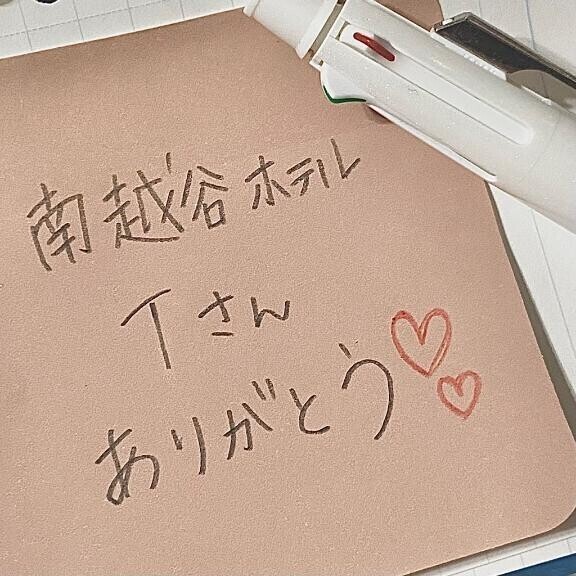 南越谷ホテル
Tさん
ありがとう